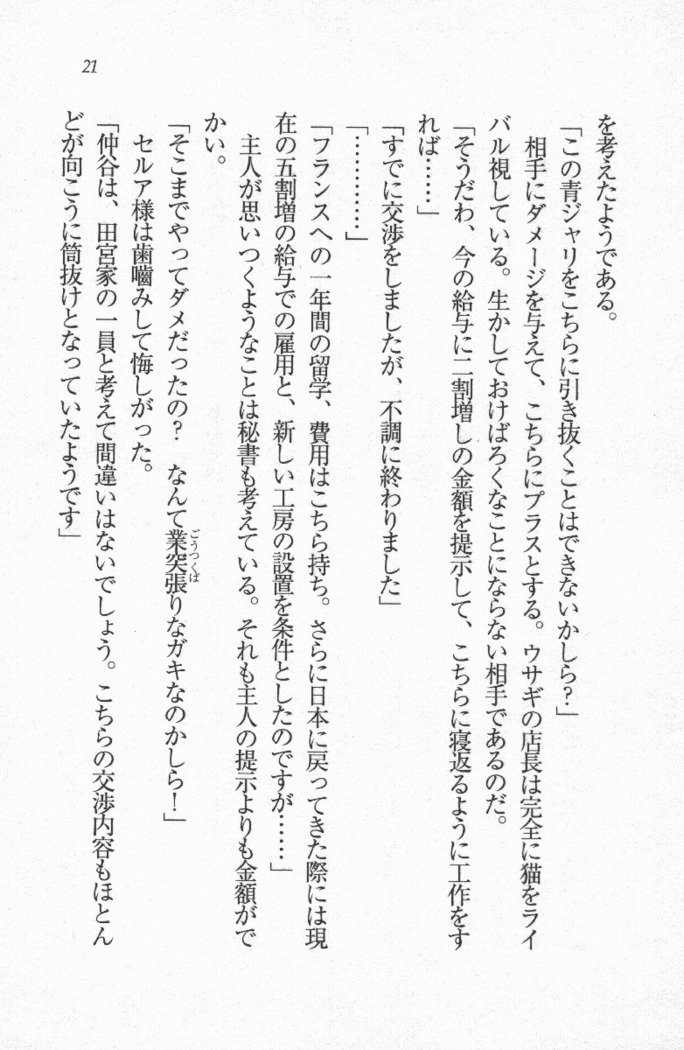 21
を考えたようである。
「この青ジャリをこちらに引き抜くことはできないかしら？」
相手にダメージを与えて、こちらにプラスとする。ウサギの店長は完全に猫をライ
バル視している。生かしておけばろくなことにならない相手であるのだ。
「そうだわ、今の給与に二割増しの金額を提示して、こちらに寝返るように工作をす
れば……」
「すでに交渉をしましたが、不調に終わりました」
「…………」
「フランスへの一年間の留学、費用はこちら持ち。さらに日本に戻ってきた際には現
在の五割増の給与での雇用と、新しい工房の設置を条件としたのですが……」
主人が思いつくようなことは秘書も考えている。それも主人の提示よりも金額がで
かい。
「そこまでやってダメだったの？　なんて業突張りなガキなのかしら！」
ごうつくば
セルア様は歯嚙みして悔しがった。
「仲谷は、田宮家の一員と考えて間違いはないでしょう。こちらの交渉内容もほとん
どが向こうに筒抜けとなっていたようです」